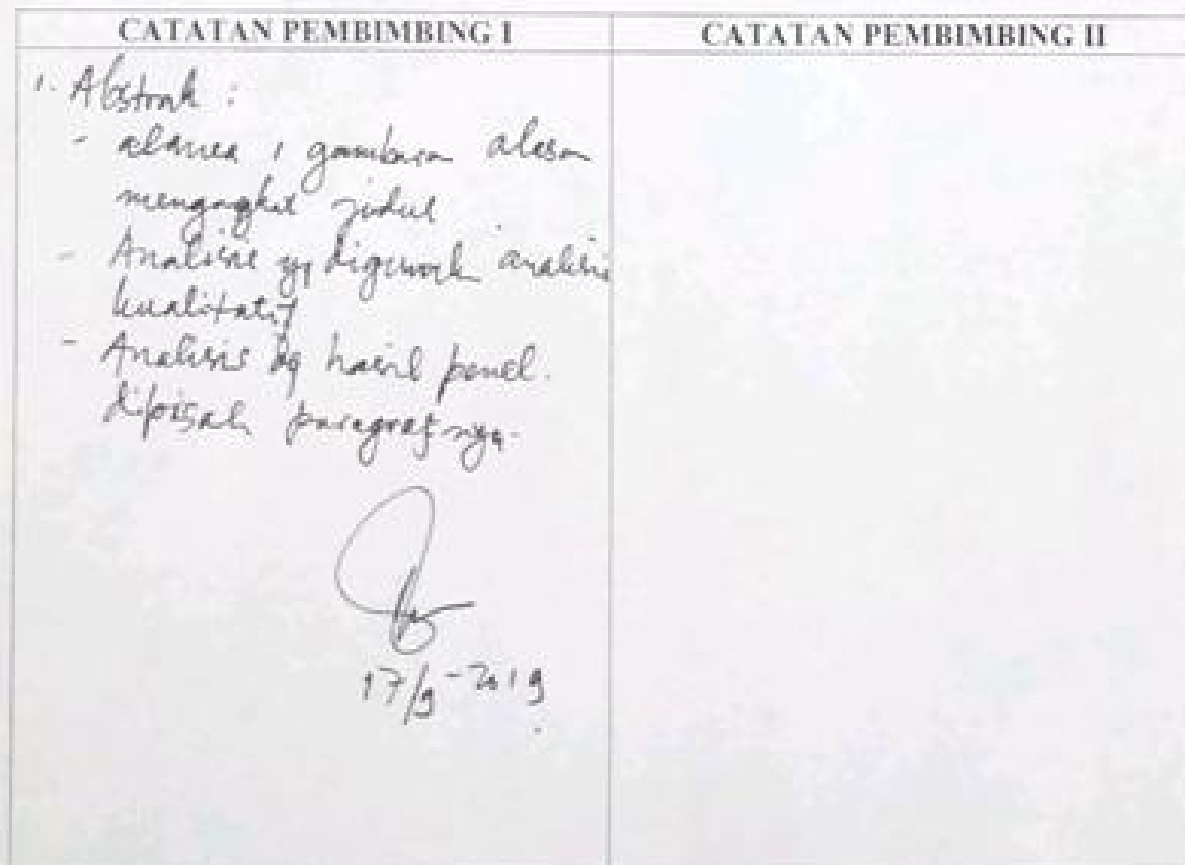 CATATAN PEMBIMBING I
CATATAN PEMBIMBING II
1. Abstrak :
- alanea 1 gambaran alasan
mengangkat judul
- Analisis yg digunak analisis
kualitatif
- Analisis dg hasil penel.
dipisah paragrafnya.
17/9-2019